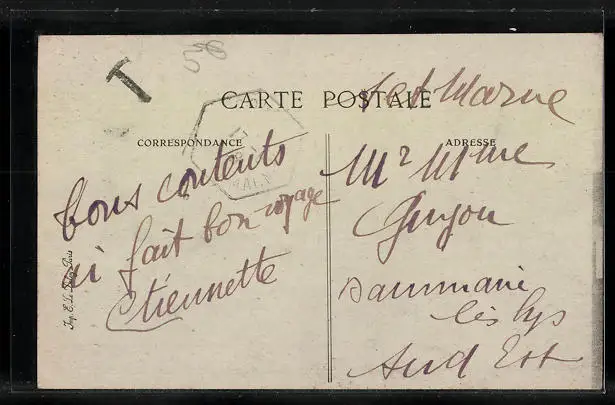 T
58
CARTE POSTALE
Set Marne
CORRESPONDANCE
ADRESSE
bons contents
ai fait bon voyage
Etiennette
Mr Mme
Guyon
Dammarie
lès Lys
Sud Est